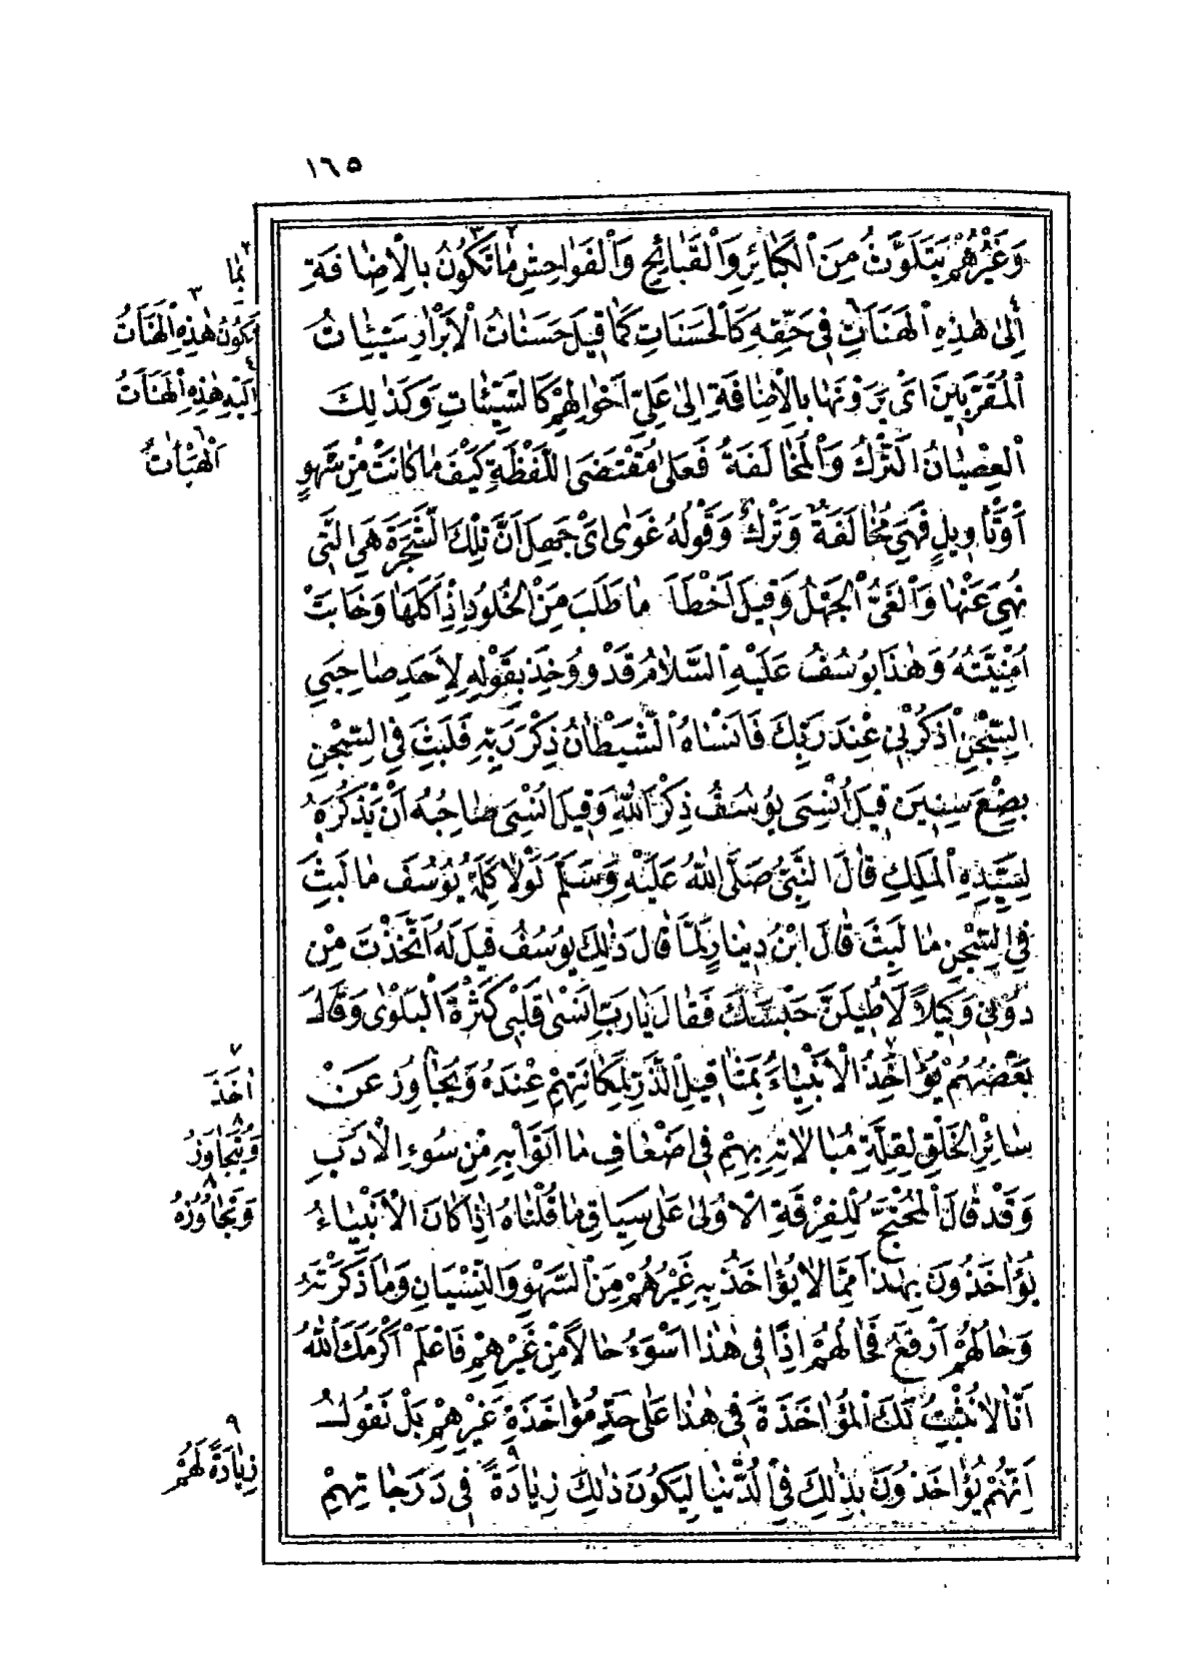 ١٦٥
وَغَيْرُهُمْ يَتَلَوَّثُ مِنَ الْكَبَائِرِ وَالْقَبَائِحِ وَالْفَوَاحِشِ مَا تَكُونُ بِالْاِضَافَةِ
اِلٰى هٰذِهِ الْهَنَاتِ فِى حَقِّهِ كَالْحَسَنَاتِ كَمَا قِيلَ حَسَنَاتُ الْاَبْرَارِ سَيِّئَاتُ
الْمُقَرَّبِينَ اَىْ يَرَوْنَهَا بِالْاِضَافَةِ اِلىٰ عَلِيِّ اَحْوَالِهِمْ كَالسَّيِّئَاتِ وَكَذٰلِكَ
الْعِصْيَانُ التَّرْكُ وَالْمُخَالَفَةُ فَعَلىٰ مُقْتَضَى اللَّفْظَةِ كَيْفَ مَا كَانَتْ مِنْ سَهْوٍ
اَوْ تَأْوِيلٍ فَهِىَ مُخَالَفَةٌ وَتَرْكٌ وَقَوْلُهُ غَوٰى اَىْ جَهِلَ اَنَّ تِلْكَ الشَّجَرَةَ هِىَ الَّتِى
نُهِىَ عَنْهَا وَالْغَىُّ الْجَهْلُ وَقِيلَ اَخْطَأَ مَا طَلَبَ مِنَ الْخُلُودِ اِذْ اَكَلَهَا وَخَابَتْ
اُمْنِيَّتُهُ وَهٰذَا يُوسُفُ عَلَيْهِ السَّلَامُ قَدْ وُوخِذَ بِقَوْلِهِ لِاَحَدِ صَاحِبَىِ
السِّجْنِ اُذْكُرْنِى عِنْدَ رَبِّكَ فَاَنْسَاهُ الشَّيْطَانُ ذِكْرَ رَبِّهِ فَلَبِثَ فِى السِّجْنِ
بِضْعَ سِنِينَ قِيلَ اُنْسِىَ يُوسُفُ ذِكْرَ اللهِ وَقِيلَ اُنْسِىَ صَاحِبُهُ اَنْ يَذْكُرَهُ
لِسَيِّدِهِ الْمَلِكِ قَالَ النَّبِىُّ صَلَّى اللهُ عَلَيْهِ وَسَلَّمَ لَوْلَا كَلِمَةُ يُوسُفَ مَا لَبِثَ
فِى السِّجْنِ مَا لَبِثَ قَالَ ابْنُ دِينَارٍ لَمَّا قَالَ ذٰلِكَ يُوسُفُ قِيلَ لَهُ اَتَّخَذْتَ مِنْ
دُونِى وَكِيلًا لَاُطِيلَنَّ حَبْسَكَ فَقَالَ يَا رَبِّ اَنْسٰى قَلْبِى كَثْرَةُ الْبَلْوٰى وَقَالَ
بَعْضُهُمْ يُؤَاخَذُ الْاَنْبِيَاءُ بِمَثَاقِيلِ الذَّرِّ لِمَكَانَتِهِمْ عِنْدَهُ وَيُجَاوِزُ عَنْ
سَائِرِ الْخَلْقِ لِقِلَّةِ مُبَالَاتِهِ بِهِمْ فِى اَضْعَافِ مَا اَتَوْا بِهِ مِنْ سُوءِ الْاَدَبِ
وَقَدْ قَالَ الْمُحْتَجُّ لِلْفِرْقَةِ الْاُولىٰ عَلىٰ سِيَاقِ مَا قُلْنَاهُ اِذَا كَانَ الْاَنْبِيَاءُ
يُؤَاخَذُونَ بِهٰذَا مِمَّا لَا يُؤَاخَذُ بِهِ غَيْرُهُمْ مِنَ السَّهْوِ وَالنِّسْيَانِ وَمَا ذَكَرْتَهُ
وَحَالُهُمْ اَرْفَعُ فَحَالُهُمْ اِذًا فِى هٰذَا اَسْوَءُ حَالًا مِنْ غَيْرِهِمْ فَاعْلَمْ اَكْرَمَكَ اللهُ
اَنَّا لَا نُثْبِتُ لَكَ الْمُؤَاخَذَةَ فِى هٰذَا عَلىٰ حَدِّ مُؤَاخَذَةِ غَيْرِهِمْ بَلْ نَقُولُ
اِنَّهُمْ يُؤَاخَذُونَ بِذٰلِكَ فِى الدُّنْيَا لِيَكُونَ ذٰلِكَ زِيَادَةً فِى دَرَجَاتِهِمْ
٢
بِمَا
٣
تَكُونُ هٰذِهِ الْهَنَاتُ
٤
اِلَيْهِ هٰذِهِ الْهَنَاتُ
٦
الْهَيْاٰتُ
٧
اَخَذَ
٨
وَيَتَجَاوَزُ
٨
وَتَجَاوُزُهُ
٩
زِيَادَةً لَهُمْ